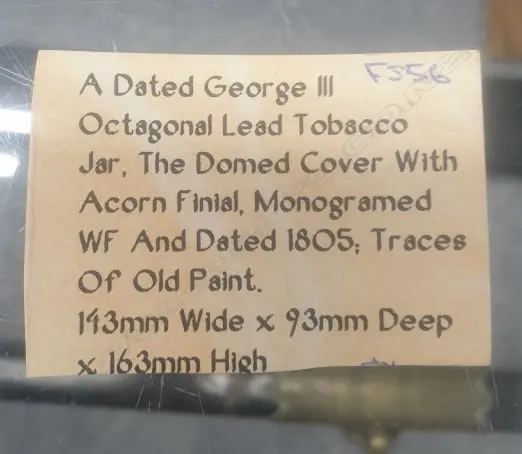 A Dated George III FS56
Octagonal Lead Tobacco
Jar, The Domed Cover With
Acorn Finial, Monogramed
WF And Dated 1805; Traces
Of Old Paint.
143mm Wide x 93mm Deep
x 163mm High